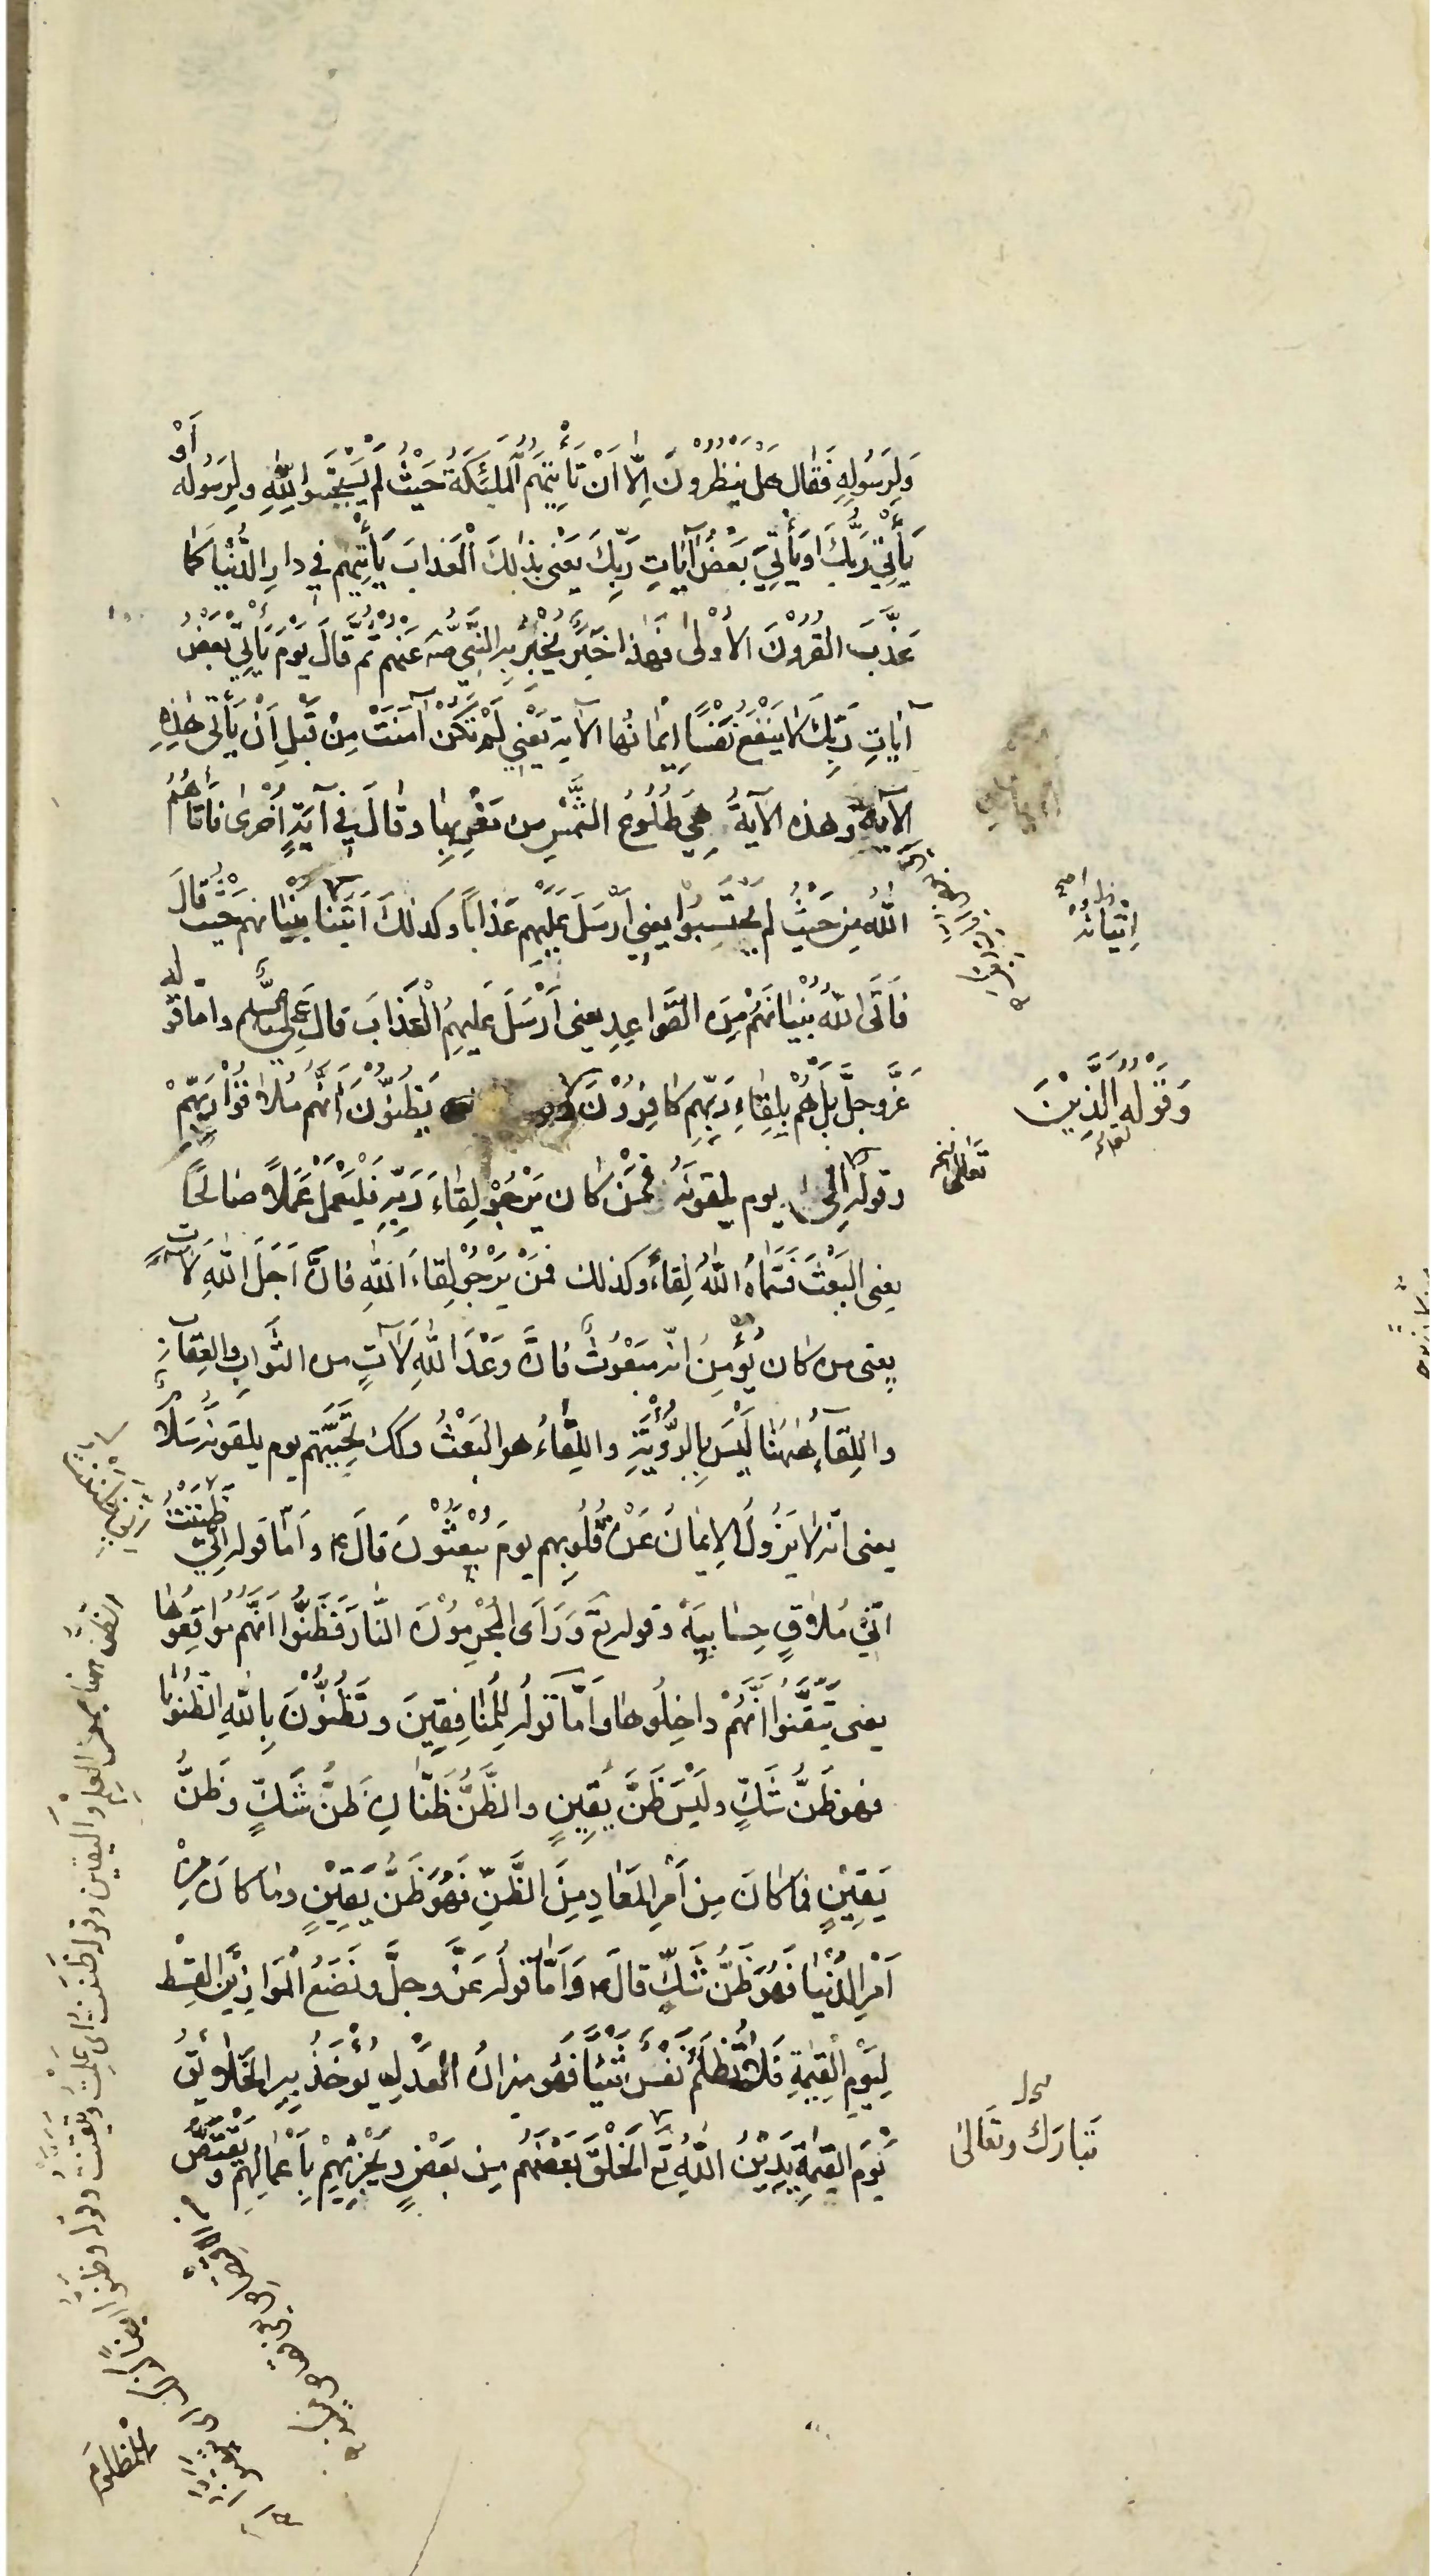 وَلِرَسُولِهِ فَقَالَ هَلْ يَنْظُرُونَ اِلّا اَنْ تَأْتِيَهُمُ الْمَلٰئِكَةُ حَيْثُ لَمْ يَسْتَجِيبُوا لِلّٰهِ وَلِرَسُولِهِ أَوْ
يَأْتِيَ رَبُّكَ اَوْ يَأْتِيَ بَعْضُ آيٰاتِ رَبِّكَ يَعْنى بِذٰلِكَ الْعَذابَ يَأْتِيهِمْ فِي دارِ الدُّنْيٰا كَمٰا
عَذَّبَ الْقُرُونَ الأُولىٰ فَهٰذا خَبَرٌ يُخْبِرُ بِهِ النَّبِيَّ صه عَنْهُمْ ثُمَّ قٰالَ يَوْمَ يَأْتِي بَعْضُ
آيٰاتِ رَبِّكَ لاٰ يَنْفَعُ نَفْساً اِيمٰانُهٰا الآية يَعْنِي لَمْ تَكُنْ آمَنَتْ مِنْ قَبْلِ اَنْ يَأْتِىَ هٰذِهِ
الآيَةُ وهذه الآيَةُ هِيَ طُلُوعُ الشَّمْسِ مِن مَغْرِبِهٰا وقٰالَ فِي آيَةٍ اُخْرىٰ فَأَتٰاهُمُ
اللّٰهُ مِن حَيْثُ لم يَحْتَسِبُوا يعني اَرْسَلَ عَلَيْهِم عَذٰاباً وكذلكَ اَتَيْنا بُنْيٰانهم حَيْثُ قالَ
فَاَتَى اللّٰهُ بُنْيٰانَهُمْ مِنَ القَوٰاعِدِ يعنى اَرْسَلَ عَلَيهِمُ الْعَذابَ قالَ عَليه السَّلام واَمّا قوله
عَزَّ وجلَّ بَلْ هُمْ بِلِقٰاءِ رَبِّهِم كٰافِرُوْنَ يَظُنّونَ اَنَّهُم مُلاٰقُوا رَبِّهِمْ
وَقَوْلِهِ الَّذِيْنَ
وقولِه الى يوم يلقونَهُ فَمَنْ كٰان يَرْجُوْ لِقٰاءَ رَبِّهِ فَلْيَعْمَلْ عَمَلاً صٰالحًا
يعنى البَعْثَ فَسَمّٰاهُ اللّٰهُ لِقٰاءً وكذلك مَنْ يَرْجُو لِقاءَ اللّٰهِ فَاِنَّ اَجَلَ اللّٰهِ لَآتٍ
يعنى من كٰان يُؤْمِنُ انّه مَبْعُوثٌ فَاِنَّ وَعْدَ اللّٰهِ لَآتٍ من الثَّوٰابِ والعِقٰابِ
واللِّقٰاءُ هٰهُنٰا لَيْسَ بِالرُّؤْيَةِ واللِّقٰاءُ هو البَعْثُ وكك تَحِيَّتُهم يوم يلقونه سَلاٰمٌ
يعنى انّه لاٰ يَزُولُ الاِيمٰانُ عَنْ قُلُوبِهِم يومَ يُبْعَثُوْنَ قالَ ع وَاَمّا قوله اِنّي ظَنَنْتُ
اَنّي مُلاٰقٍ حِسٰابِيَهْ وقوله تع وَرَأَى الْمُجْرِمُوْنَ النّٰارَ فَظَنُّوا اَنَّهُم مُوٰاقِعُوهٰا
يعنى تَيَقَّنُوا اَنَّهُمْ داخِلُوهٰا وَاَمّٰا قولُه لِلْمُنٰافِقِينَ وتَظُنُّوْنَ بِاللّٰهِ الظُّنُونٰا
فهو ظَنُّ شَكٍّ وليْسَ ظَنَّ يَقِينٍ والظَّنُّ ظَنّٰانِ ظَنُّ شَكٍّ وظَنُّ
يَقِينٍ فمٰا كٰانَ مِن اَمْرِ المَعٰادِ مِنَ الظَّنِّ فَهُوَ ظَنُّ يَقِيْنٍ وما كانَ مِنْ
اَمْرِ الدُّنْيٰا فَهُوَ ظَنُّ شَكٍّ قالَ ع وَاَمّٰا قولُه عَزَّ وجلَّ ونَضَعُ الْمَوازِيْنَ القِسْطَ
لِيَوْمِ الْقِيٰمَةِ فَلاٰ تُظْلَمُ نَفْسٌ شَيْئاً فَهُو ميزانُ الْعَدْلِ يُؤْخَذُ بِهِ الخَلاٰئِقُ
يَوْمَ القِيٰمَةِ يَدِيْنُ اللّٰهُ تع الْخَلْقَ بَعْضَهُم مِن بَعْضٍ ويَجْزِيْهِمْ بِاَعْمٰالِهِمْ وَيَقْتَصُّ
تَبارَك وتَعَالىٰ
لِلْمَظْلُومِ
اِتْيَانُهُ
تَعَالى
الظن هنا بمعنى العلم واليقين وقوله ظَنَنْتُ اى عَلِمْتُ وتيقنت وقوله وظنوا